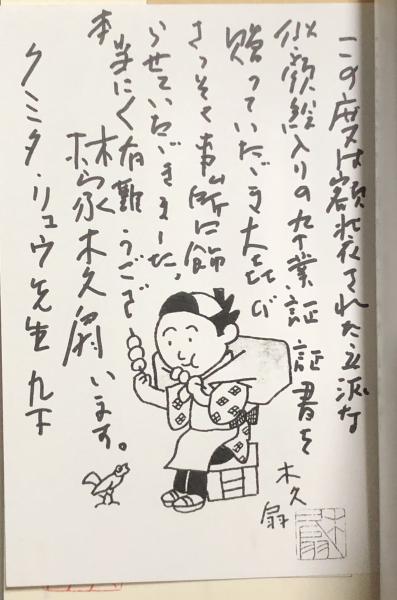 この度は額装された立派な
似顔絵入りの卆業証 証書を
贈っていただき大喜び
さっそく事ム所に飾
らせていただきました。
本当に〱有難うござ
います。
林家木久扇
クミタ・リュウ先生 几下
木久扇